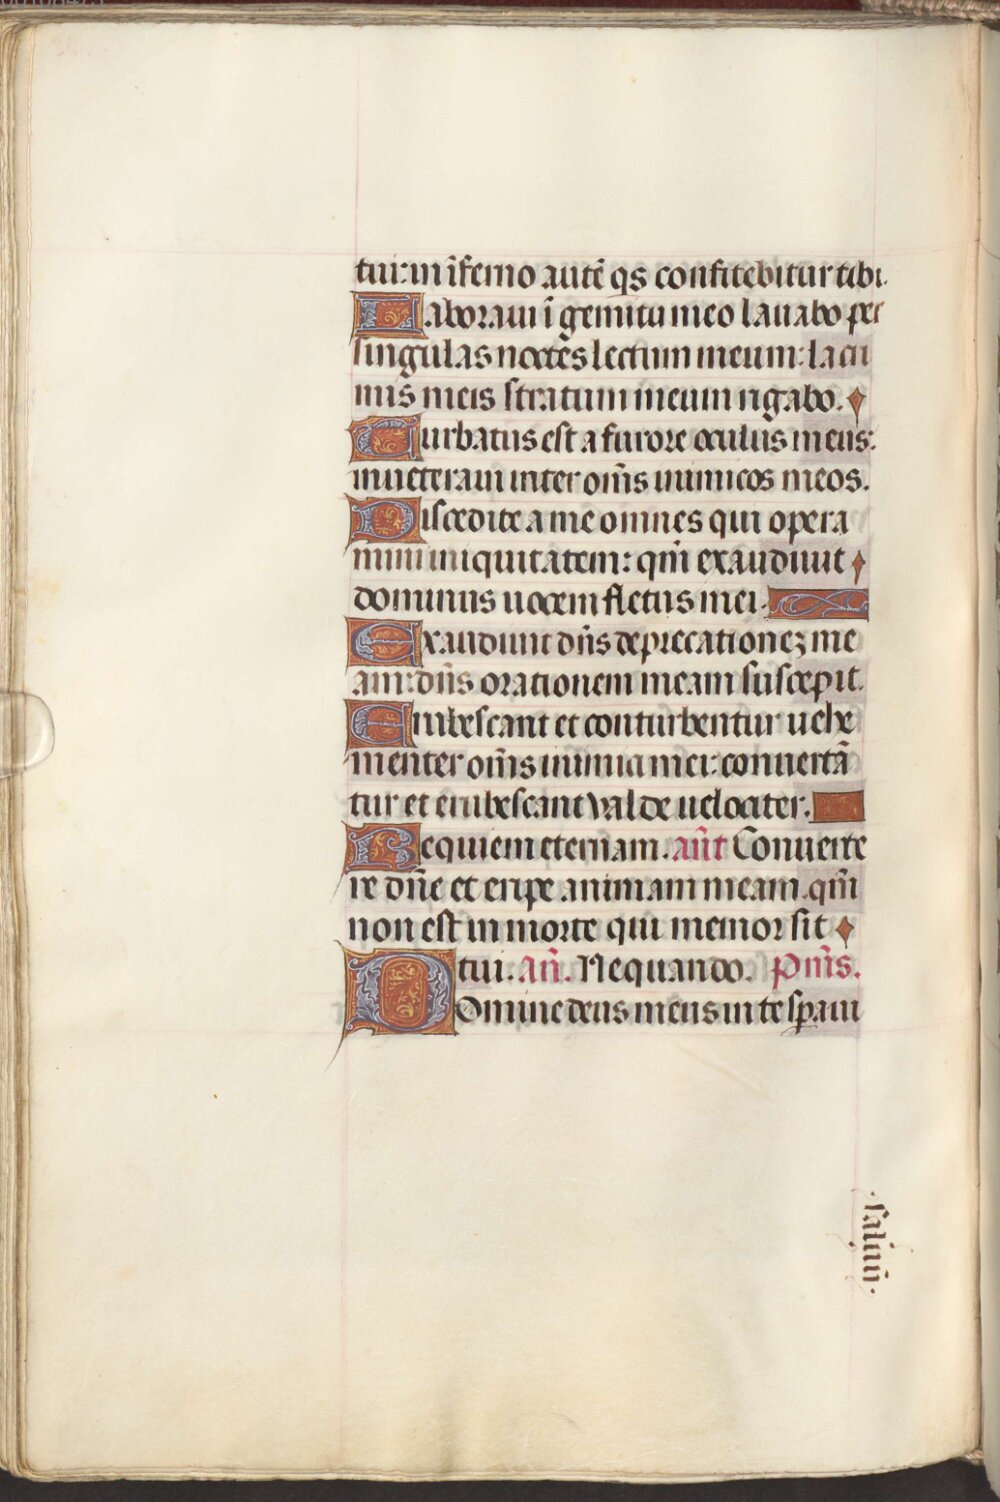 tui: in īferno autē q̄s confitebitur tibi.
Laboraui ī gemitu meo lauabo per
singulas noctes lectum meum: lacri
mis meis stratum meum rigabo.
Turbatus est a furore oculus meus:
inueteraui inter om̄s inimicos meos.
Discedite a me omnes qui opera
mini iniquitatem: qm̄ exaudiuit
dominus uocem fletus mei.
Exaudiuit dn̄s deprecationez me
am: dn̄s orationem meam suscepit.
Erubescant et conturbentur uehe
menter om̄s inimici mei: conuertā
tur et erubescant valde uelociter.
Requiem eternam. an̄t Conuerte
re dn̄e et eripe animam meam. qm̄
non est in morte qui memor sit
tui. an̄. Nequando. p̄m̄s.
Domine deus meus in te speraui
.saluū.